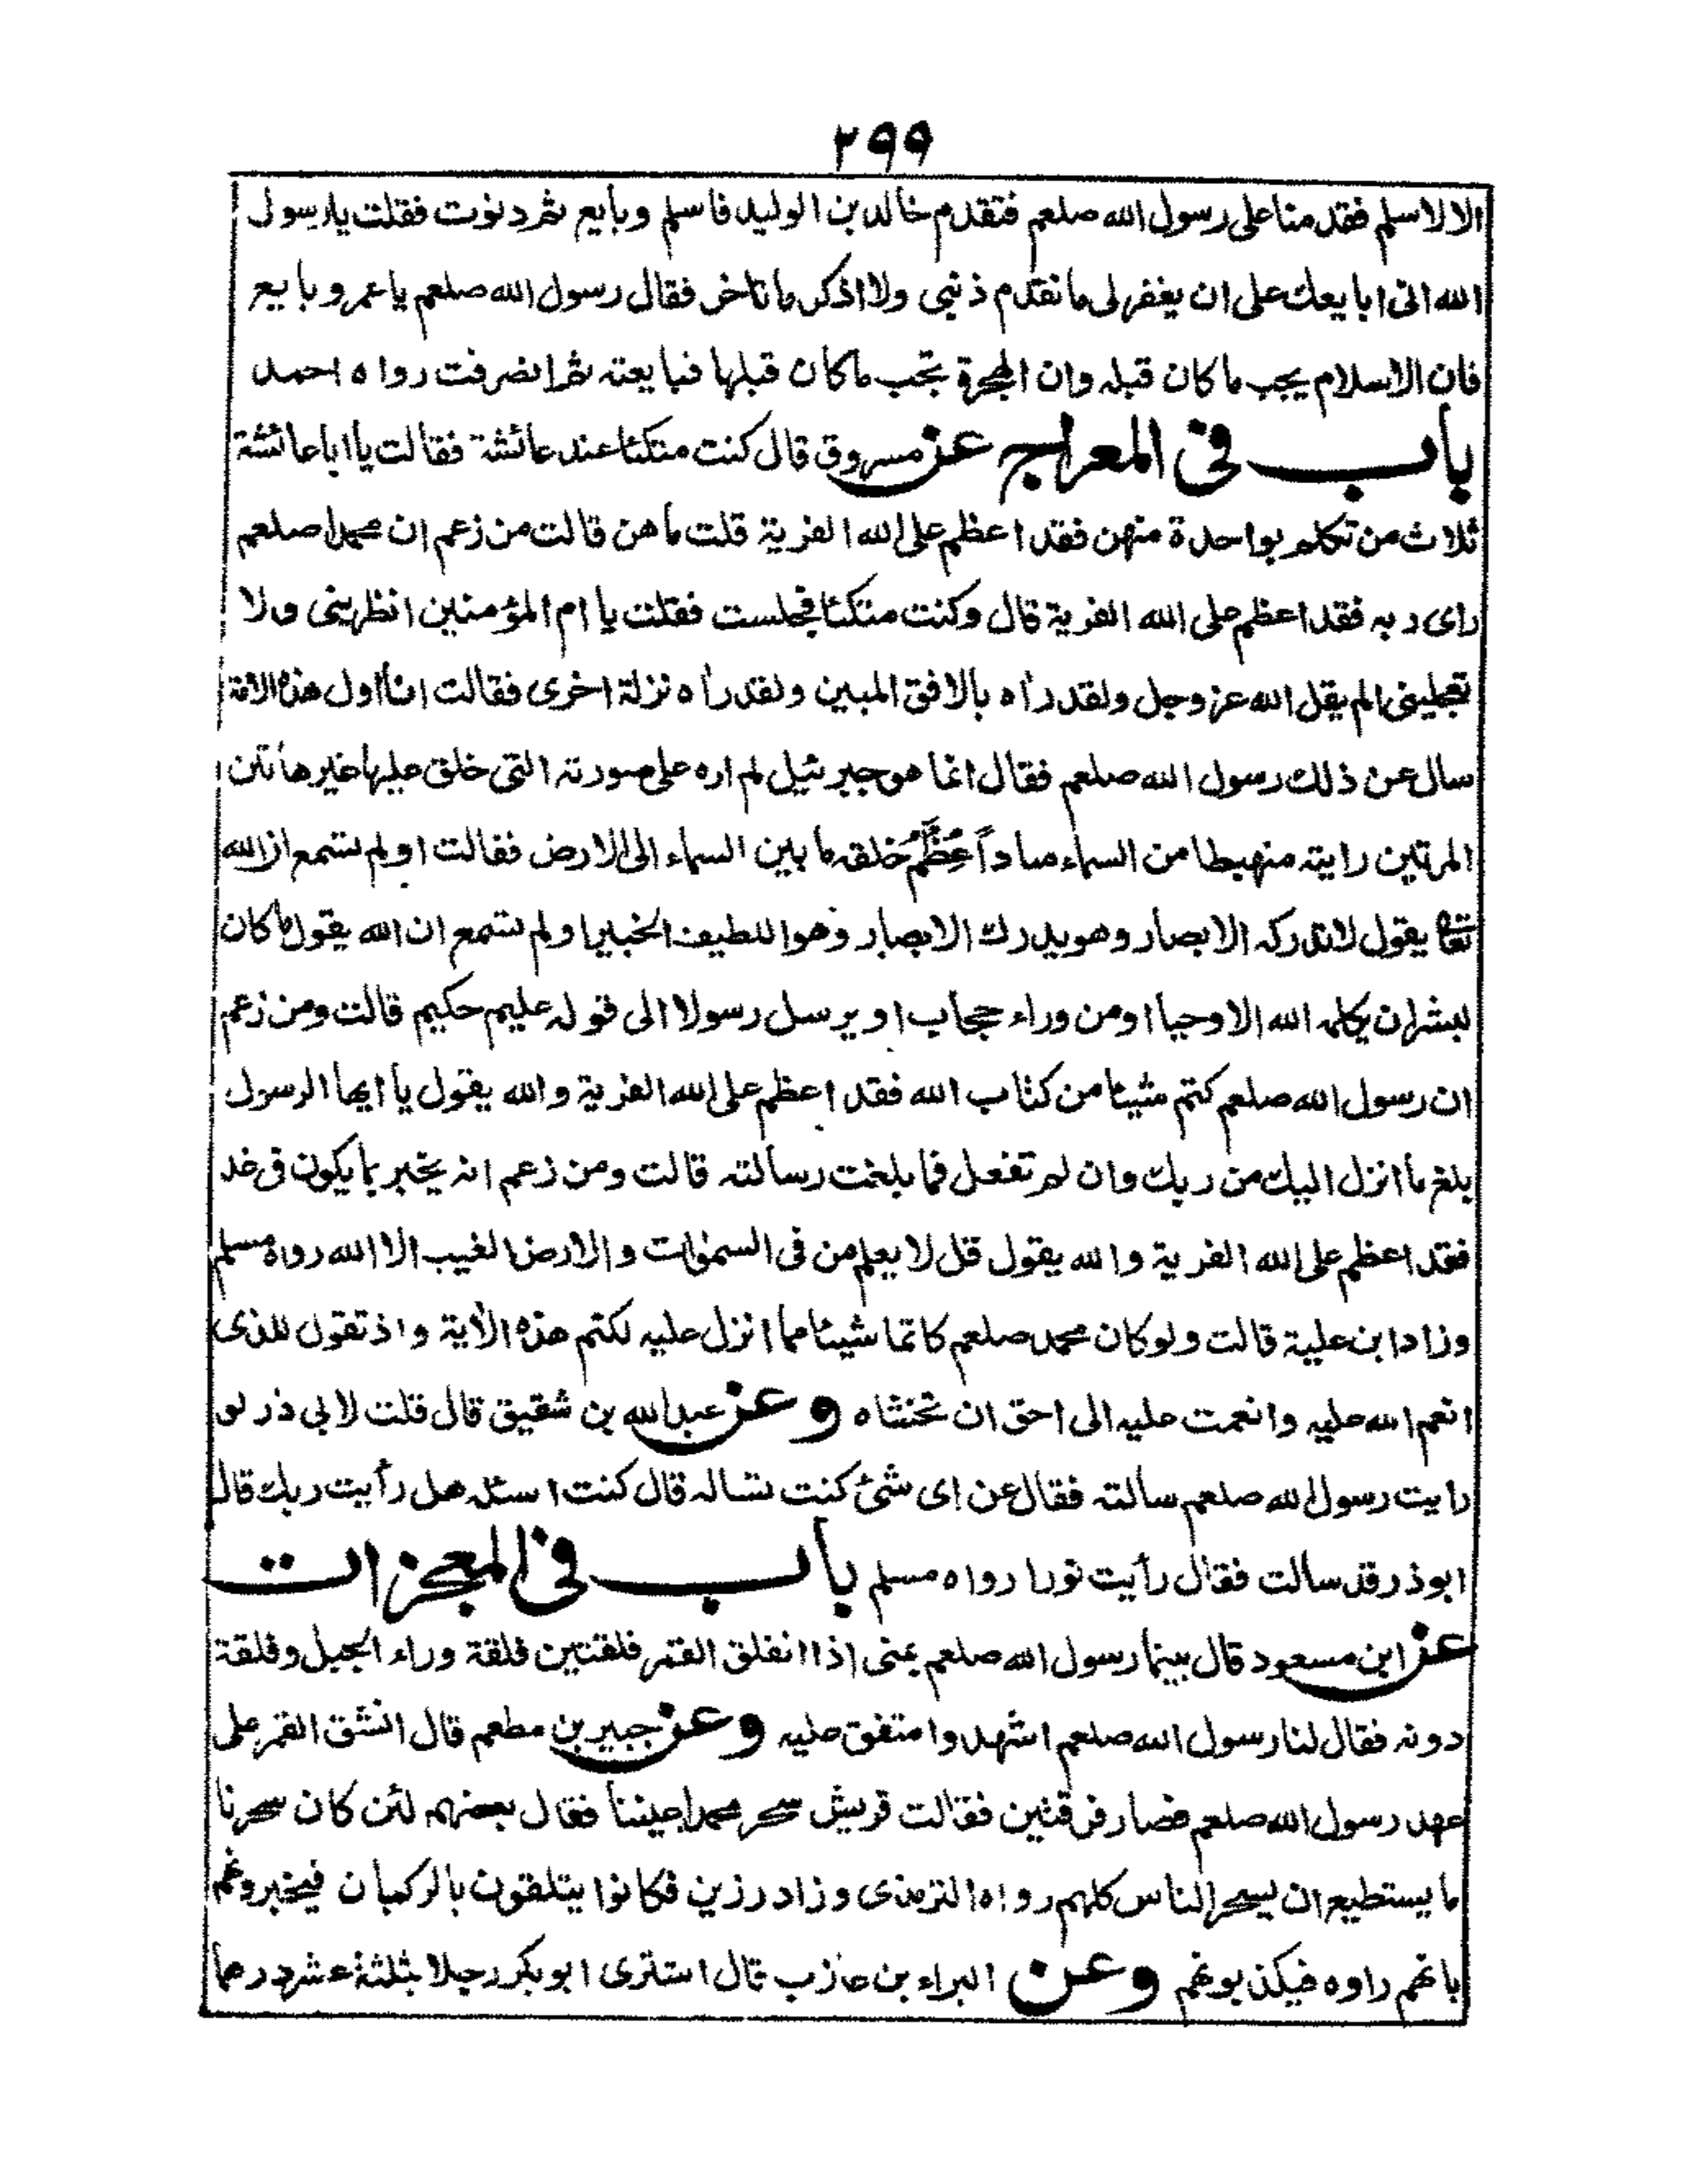 ٢٩٩
الا لاسلم فقدمنا على رسول الله صلعم فتقدم خالد بن الوليد فاسلم وبايع ثم دنوت فقلت يا رسول
الله انى ابايعك على ان يغفر لى ما تقدم ذنبى ولا اذكر ما تاخر فقال رسول الله صلعم يا عمرو بايع
فان الاسلام يجب ما كان قبله وان الهجرة تجب ما كان قبلها فبايعته ثم انصرفت رواه احمد
باب فى المعراج عن مسروق قال كنت متكئا عند عائشة فقالت يا ابا عائشة
ثلاث من تكلم بواحدة منهن فقد اعظم على الله الفرية قلت ما هن قالت من زعم ان محمدا صلعم
راى ربه فقد اعظم على الله الفرية قال وكنت متكئا فجلست فقلت يا ام المؤمنين انظرينى ولا
تعجلينى الم يقل الله عز وجل ولقد رأه بالافق المبين ولقد رأه نزلة اخرى فقالت انا اول هذه الامة
سال عن ذلك رسول الله صلعم فقال انما هو جبرئيل لم اره على صورته التى خلق عليها غير هاتين
المرتين رايته منهبطا من السماء سادا عِظَمُ خلقه ما بين السماء الى الارض فقالت او لم تسمع ان الله
تعالى يقول لا تدركه الابصار وهو يدرك الابصار وهو اللطيف الخبير او لم تسمع ان الله يقول ما كان
لبشر ان يكلمه الله الا وحيا او من وراء حجاب او يرسل رسولا الى قوله عليم حكيم قالت ومن زعم
ان رسول الله صلعم كتم شيئا من كتاب الله فقد اعظم على الله الفرية والله يقول يا ايها الرسول
بلغ ما انزل اليك من ربك وان لم تفعل فما بلغت رسالته قالت ومن زعم انه يخبر بما يكون فى غد
فقد اعظم على الله الفرية والله يقول قل لا يعلم من فى السموات والارض الغيب الا الله رواه مسلم
وزاد ابن علية قالت ولو كان محمد صلعم كاتما شيئا مما انزل عليه لكتم هذه الأية واذ تقول للذى
انعم الله عليه وانعمت عليه الى احق ان تخشاه وعن عبد الله بن شقيق قال قلت لابى ذر لو
رايت رسول الله صلعم سالته فقال عن اى شئ كنت تساله قال كنت اسئله هل رأيت ربك قال
ابوذر قد سالت فقال رأيت نورا رواه مسلم باب فى المعجزات
عن ابن مسعود قال بينما رسول الله صلعم بمنى اذا انفلق القمر فلقتين فلقة وراء الجبل وفلقة
دونه فقال لنا رسول الله صلعم اشهدوا متفق عليه وعن جبير بن مطعم قال انشق القمر على
عهد رسول الله صلعم فصار فرقتين فقالت قريش سحر محمد اعيننا فقال بعضهم لئن كان سحرنا
ما يستطيع ان يسحر الناس كلهم رواه الترمذى وزاد رزين فكانوا يتلقون بالركبان فيخبرونهم
بانهم راوه فيكذبونهم وعن البراء بن عازب قال اشترى ابو بكر رحلا بثلثة عشر درهما